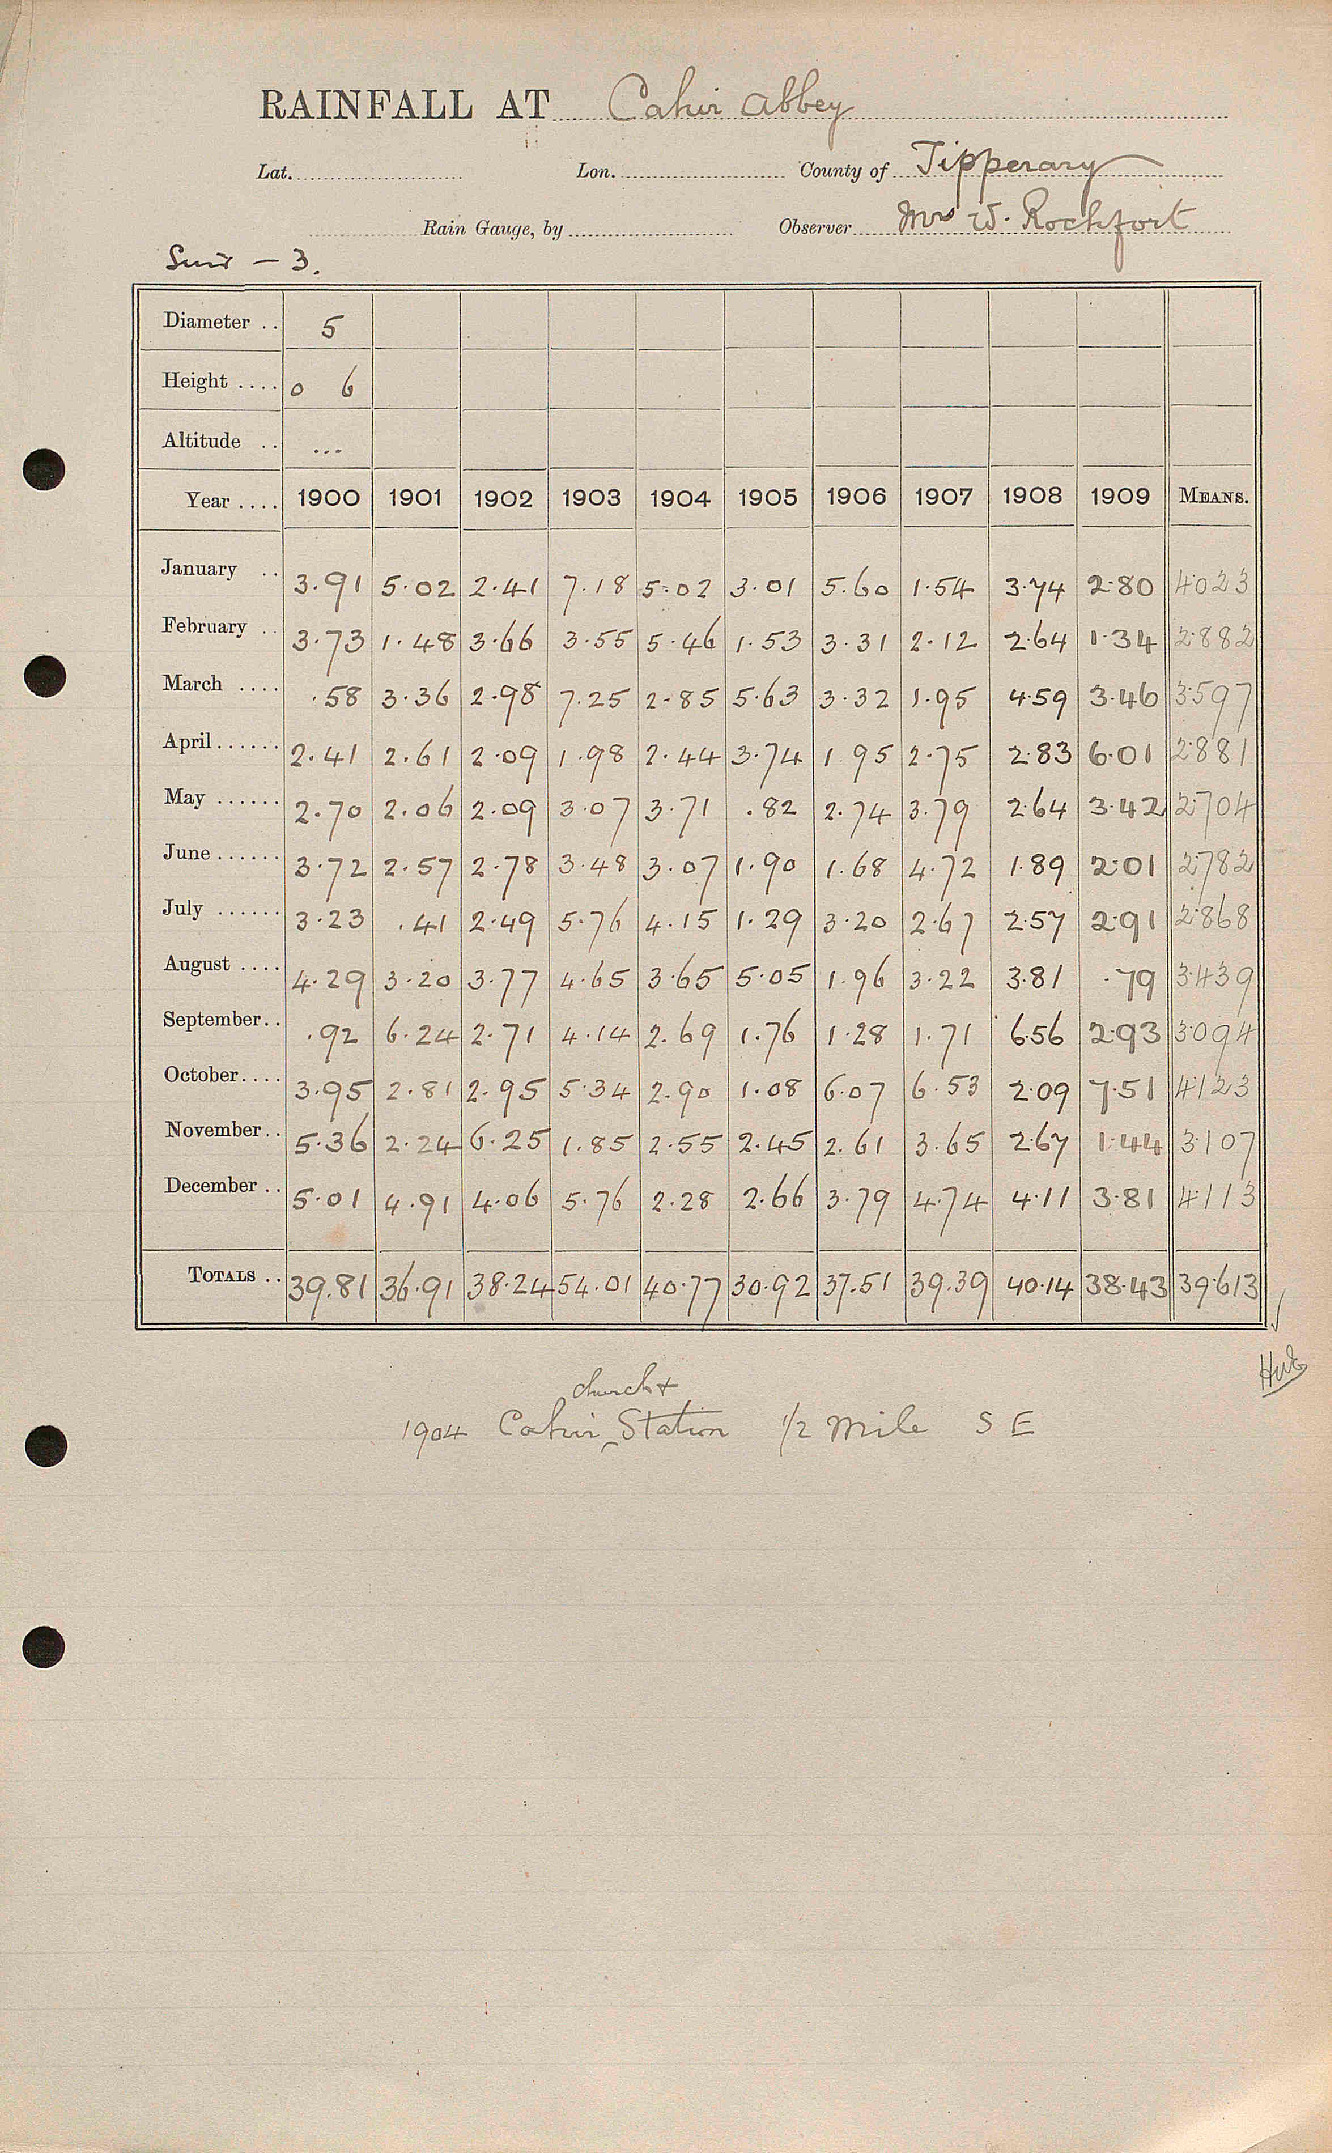 RAINFALL AT Cahir Abbey
Lat. Lon. County of Tipperary
Rain Gauge, by Observer Mrs W. Rochfort
Suir - 3.
Diameter .. 5
Height .... 0 6
Altitude .. ...
Year .... 1900 1901 1902 1903 1904 1905 1906 1907 1908 1909 MEANS.
January .. 3.91 5.02 2.41 7.18 5.02 3.01 5.60 1.54 3.74 2.80 4.023
February .. 3.73 1.48 3.66 3.55 5.46 1.53 3.31 2.12 2.64 1.34 2.882
March .... .58 3.36 2.98 7.25 2.85 5.63 3.32 1.95 4.59 3.46 3.597
April ...... 2.41 2.61 2.09 1.98 2.44 3.74 1.95 2.75 2.83 6.01 2.881
May ...... 2.70 2.06 2.09 3.07 3.71 .82 2.74 3.79 2.64 3.42 2.704
June ...... 3.72 2.57 2.78 3.48 3.07 1.90 1.68 4.72 1.89 2.01 2.782
July ...... 3.23 .41 2.49 5.76 4.15 1.29 3.20 2.67 2.57 2.91 2.868
August .... 4.29 3.20 3.77 4.65 3.65 5.05 1.96 3.22 3.81 .79 3.439
September.. .92 6.24 2.71 4.14 2.69 1.76 1.28 1.71 6.56 2.93 3.094
October.... 3.95 2.81 2.95 5.34 2.90 1.08 6.07 6.53 2.09 7.51 4.123
November.. 5.36 2.24 6.25 1.85 2.55 2.45 2.61 3.65 2.67 1.44 3.107
December .. 5.01 4.91 4.06 5.76 2.28 2.66 3.79 4.74 4.11 3.81 4.113
TOTALS .. 39.81 36.91 38.24 54.01 40.77 30.92 37.51 39.39 40.14 38.43 39.613
church +
1904 Cahir Station 1/2 mile S E